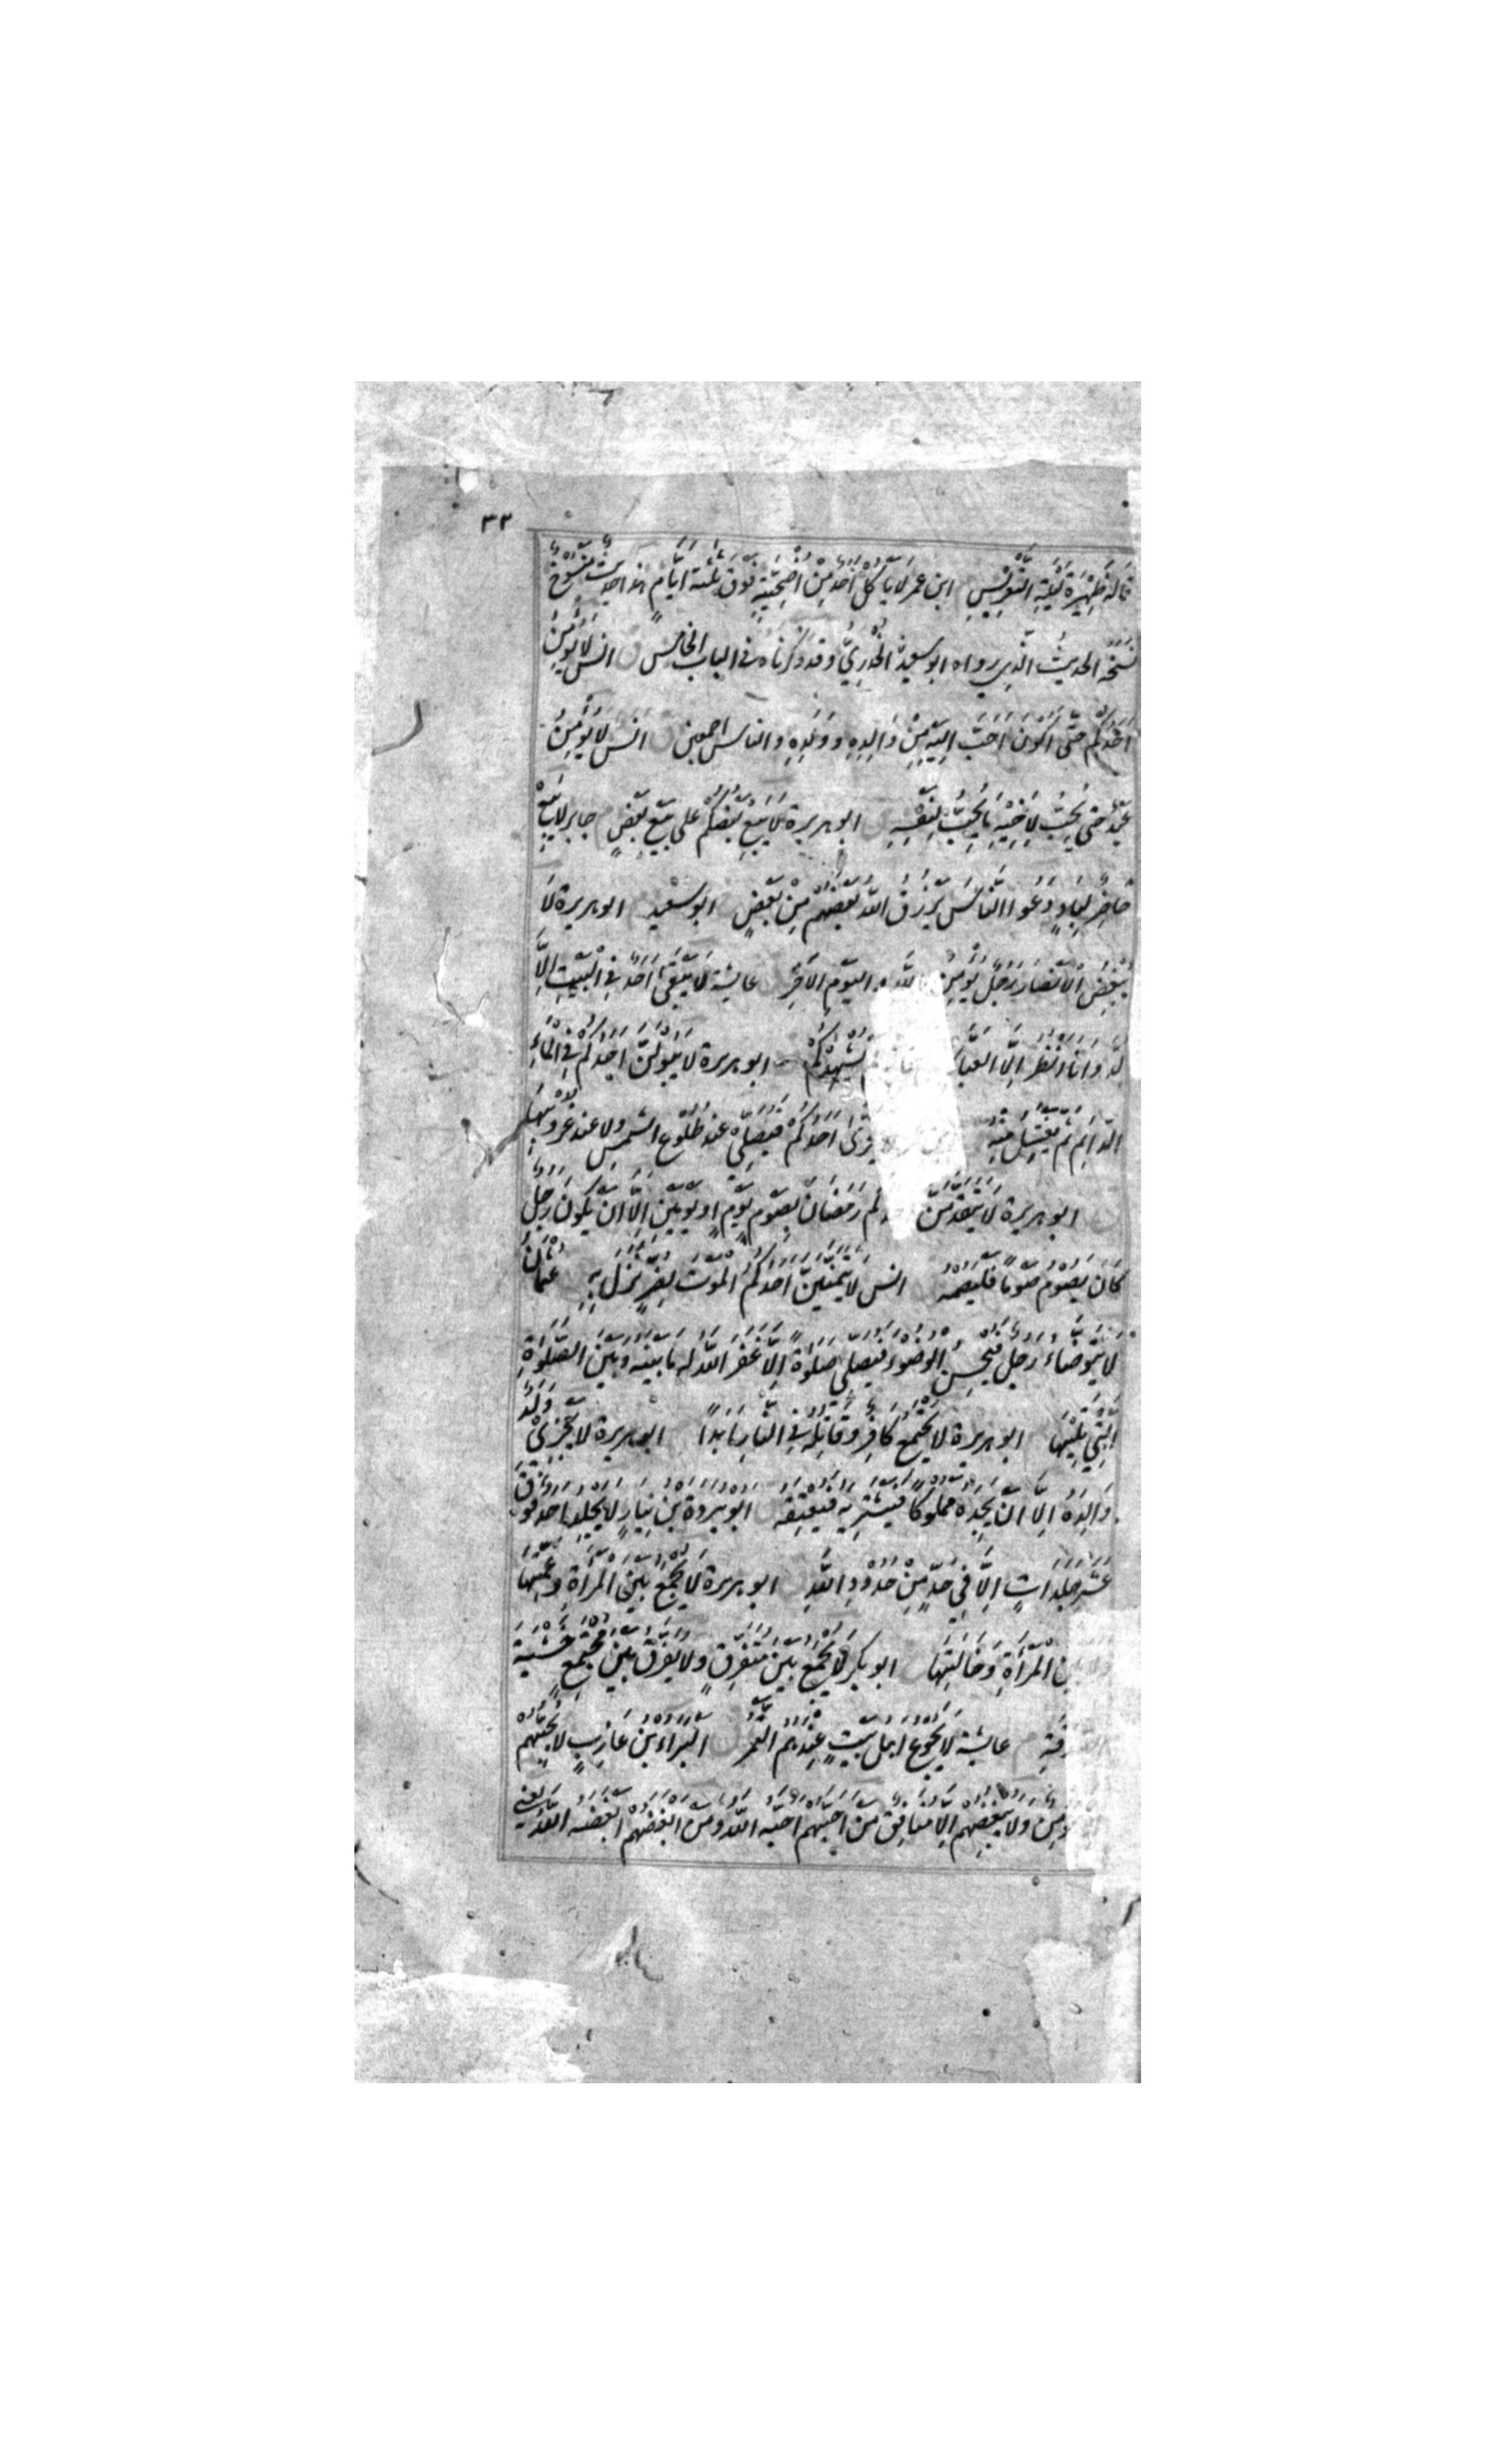 ٣٣
قَالَهُ ظَهِيرَةَ لَيْلَةِ التَّعْرِيْسِ ابن عمر لَا يَأكُلْ أَحَدٌ مِنْ أُضْحِيَّتِهِ فَوْقَ ثَلٰثَة أيَّامٍ هذا حديثٌ مَنْسُوخٌ
نَسَخَه الحديثُ الَّذِي رواه ابو سعيد الْخُدْرِيُّ وقد ذكرناه في الباب الخامس ق انس لَا يُؤْمِنُ
أَحَدُكُمْ حَتَّى أَكُوْنَ أَحَبَّ إِلَيْهِ مِنْ وَالِدِهِ وَوَلَدِهِ والناس اجمعين ق انس لا يُؤْمِنُ
عَبْدٌ حَتى يُحِبَّ لِأَخِيْهِ مَا يُحِبُّ لِنَفْسِهِ ابو هريرة لَا يَبِعْ بَعْضُكُمْ عَلى بَيْعِ بَعْضٍ جابر لا يَبِعْ
حَاضِرٌ لِبَادٍ دَعُوا النَّاسَ يَرْزُقُ اللهُ بَعْضَهُمْ مِنْ بَعْضٍ ابو سعيد ابو هريرة لَا
يُبْغِضُ الْأَنْصَارَ رَجُلٌ يُؤْمِنُ بالله واليَوْمِ الْآخِرِ عايشة لَا يَبْقَى أَحَدٌ فِي الْبَيْتِ إِلَّا
لُدَّ وَأَنَا أَنْظُرُ إِلَّا الْعَبَّا يَشْهَدْكُمْ ابو هريرة لَا يَبُوْلَنَّ أَحَدُكُمْ فِي الْمَاءِ
الدَّائِمِ ثُمَّ يَغْتَسِلُ مِنْهُ أَحَدُكُمْ فَيُصَلِّي عِنْدَ طُلُوْعِ الشَّمْسِ وَلَا عِنْدَ غُرُوْبِهَا
ابو هريرة لَا يَتَقَدَّمَنَّ كُمْ رَمَضَانَ بِصَوْمِ يَوْمٍ أَوْ يَوْمَيْنِ إِلَّا أَنْ يَكُوْنَ رَجُلٌ
كَانَ يَصُوْمُ صَوْمًا فَلْيَصُمْهُ انس لَا يَتَمَنَّيَنَّ أَحَدُكُمُ الْمَوْتَ لِضُرٍّ نَزَلَ بِهِ عثمان
لَا يَتَوَضَّاءُ رَجُلٌ فَيُحْسِنُ الْوُضُوْءَ فَيُصَلِّي صَلٰوةً إِلَّا غَفَرَ اللهُ لَهُ مَا بَيْنَهُ وَبَيْنَ الصَّلٰوةِ
الَّتِي تَلِيْهَا ابو هريرة لَا يَجْتَمِعُ كَافِرٌ وَقَاتِلُهُ فِي النَّارِ أَبَدًا ابو هريرة لَا يَجْزِيْ وَلَدٌ
وَالِدَهُ إِلَّا أَنْ يَجِدَهُ مَمْلُوْكًا فَيَشْتَرِيَهُ فَيُعْتِقَهُ ابو بردة بن نِيَارٍ لَا يُجْلَدُ أَحَدٌ فَوْقَ
عَشْرِ جَلَدَاتٍ إِلَّا فِي حَدٍّ مِنْ حُدُوْدِ اللهِ ابو هريرة لَا يُجْمَعُ بَيْنَ الْمَرْأَةِ وَعَمَّتِهَا
الْمَرْأَةِ وَخَالَتِهَا ابو بكر لَا يُجْمَعُ بَيْنَ مُتَفَرِّقٍ وَلَا يُفَرَّقُ بَيْنَ مُجْتَمِعٍ خَشْيَةَ
عايشة لَا يَجُوْعُ أَهْلُ بَيْتٍ عِنْدَهُمُ التَّمْرُ ق البراء بن عَازِبٍ لَا يُحِبُّهُمْ
وَلَا يُبْغِضُهُمْ إِلَّا مُنَافِقٌ مَنْ أَحَبَّهُمْ أَحَبَّهُ اللهُ وَمَنْ أَبْغَضَهُمْ أَبْغَضَهُ اللهُ يعني